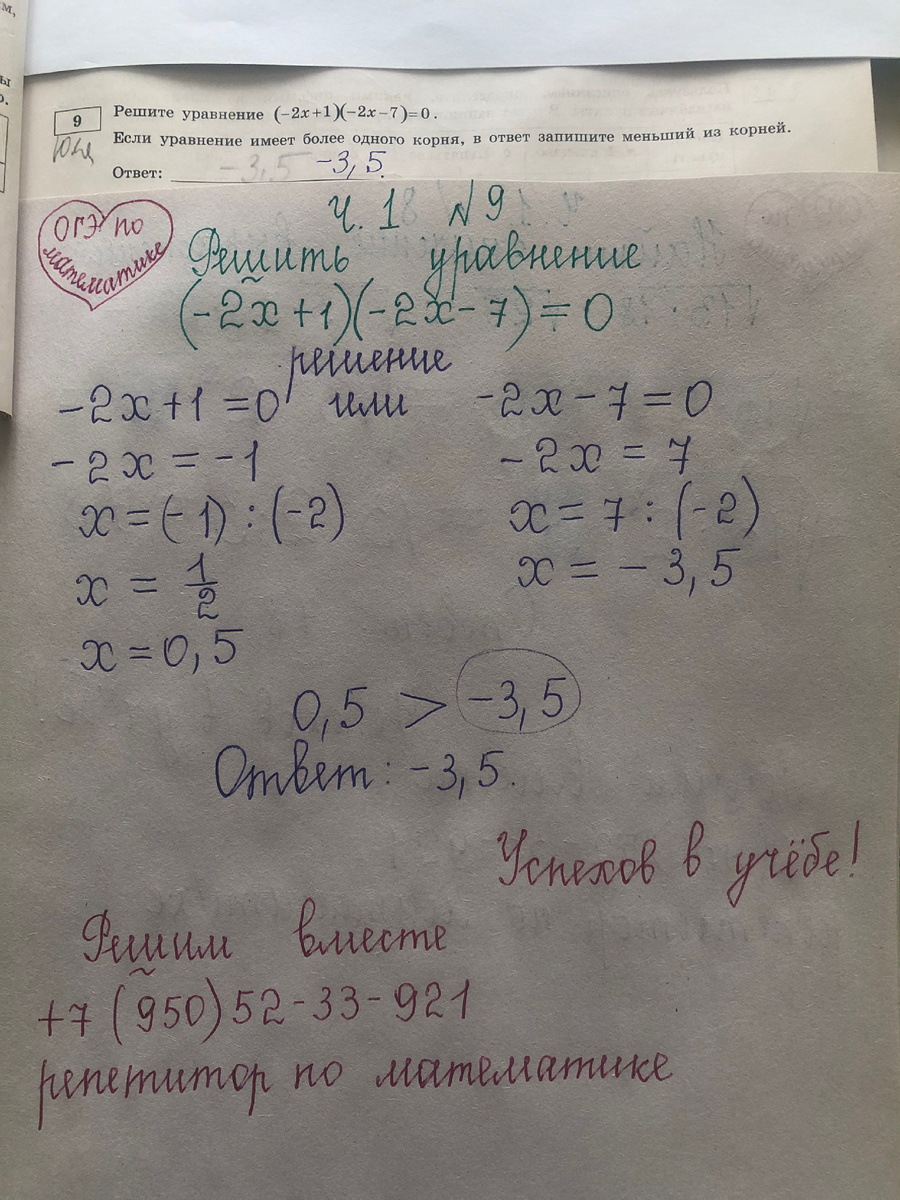 м,
ы
о.
9
Решите уравнение (−2x+1)(−2x−7)=0.
Если уравнение имеет более одного корня, в ответ запишите меньший из корней.
Ответ: −3,5 −3,5.
Ч. 1 №9
ОГЭ по
математике
Решить уравнение
(−2x+1)(−2x−7)=0
решение
−2x+1=0 или −2x−7=0
−2x=−1 −2x=7
x=(−1):(−2) x=7:(−2)
x=1/2 x=−3,5
x=0,5
0,5 > −3,5
Ответ: −3,5.
Успехов в учёбе!
Решим вместе
+7(950)52-33-921
репетитор по математике